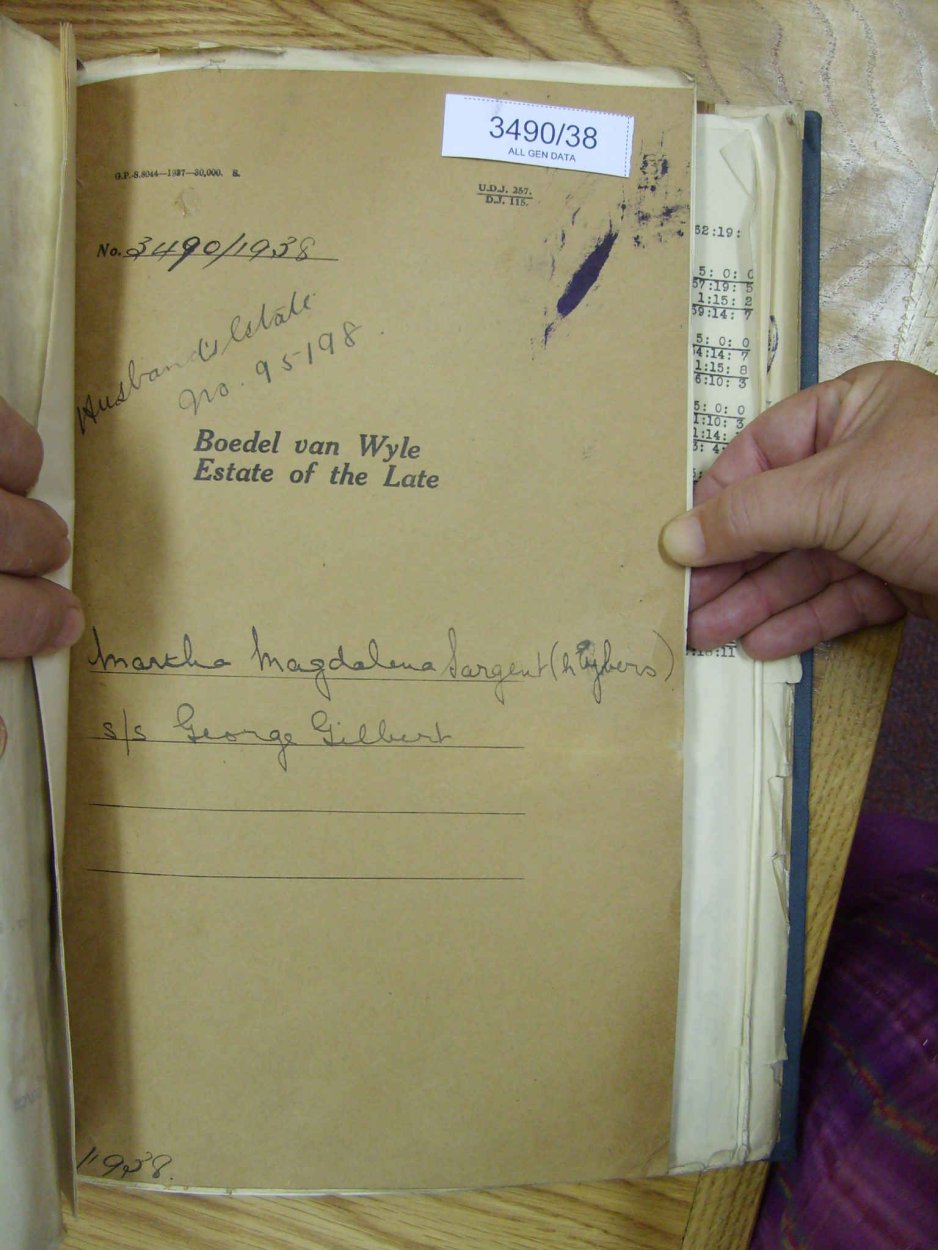 3490/38
ALL GEN DATA
G.P.-S.8044—1937—30,000. S.
U.D.J. 257.
D.J. 115.
No. 3490/1938
Husband's Estate
No. 95198
Boedel van Wyle
Estate of the Late
Martha Magdalena Sargent (
s/s George Gilbert
1938
52:19:
5: 0: 0
57:19: 5
1:15: 2
59:14: 7
5: 0: 0
54:14: 7
1:15: 8
6:10: 3
5: 0: 0
1:10: 3
1:14: